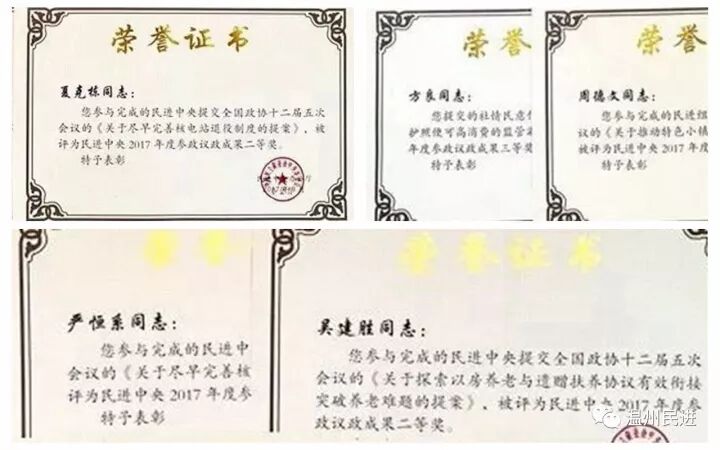 荣誉证书
夏克栋同志：
您参与完成的民进中央提交全国政协十二届五次
会议的《关于尽早完善核电站退役制度的提案》，被
评为民进中央2017年度参政议政成果二等奖。
特予表彰
荣誉
方良同志：
您提交的社情民意信
护照便可高消费的监管
年度参政议政成果三等奖
特予表彰
荣誉
周德文同志：
您参与完成的民进组
议的《关于推动特色小镇
被评为民进中央2017年
特予表彰
荣誉
严恒系同志：
您参与完成的民进中
会议的《关于尽早完善核
评为民进中央2017年度参
特予表彰
荣誉证书
吴建胜同志：
您参与完成的民进中央提交全国政协十二届五次
会议的《关于探索以房养老与遗赠扶养协议有效衔接
突破养老难题的提案》，被评为民进中央2017年度参
政议政成果二等奖。
温州民进